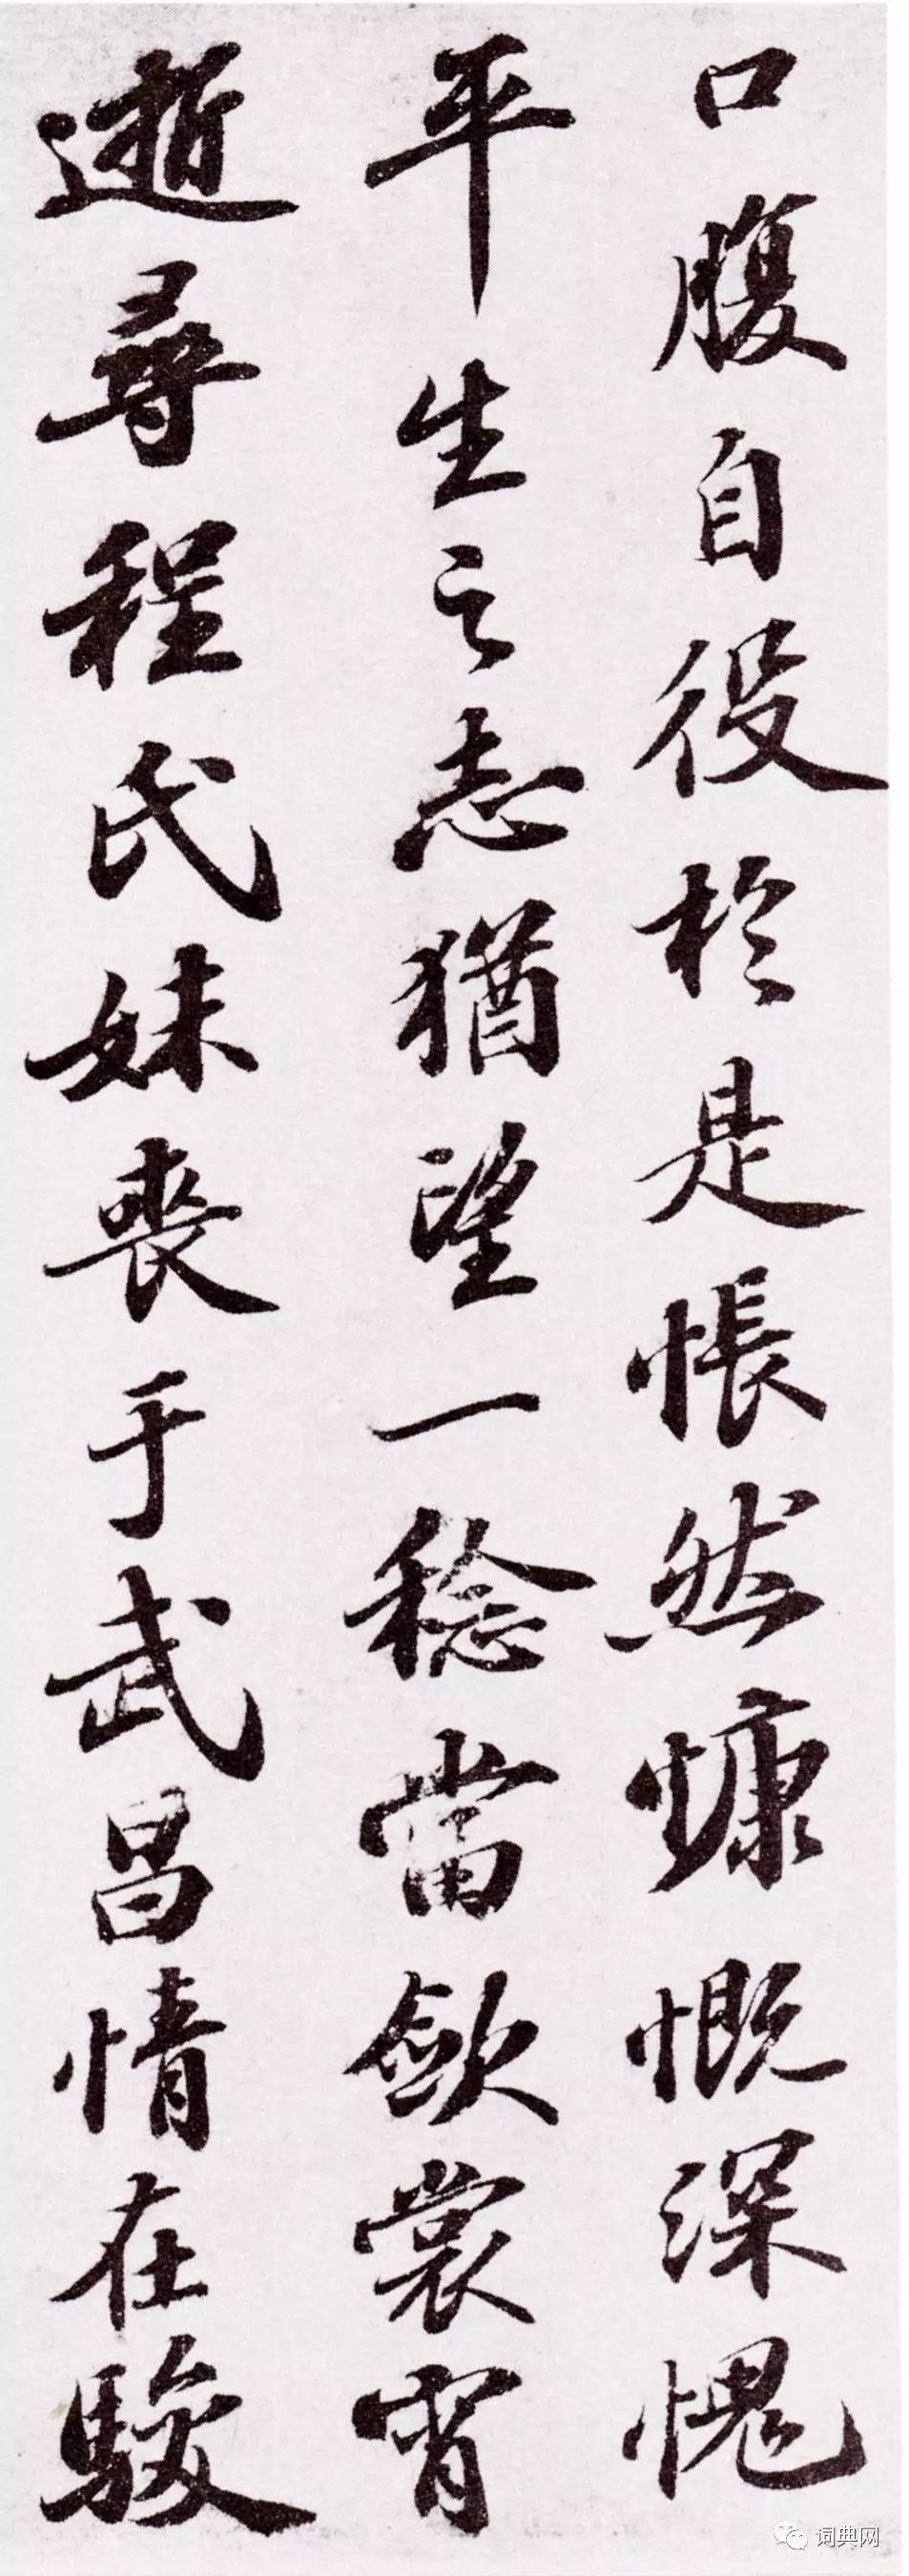 口腹自役於是悵然慷慨深愧
平生之志猶望一稔當斂裳宵
逝尋程氏妹喪于武昌情在駿
词典网